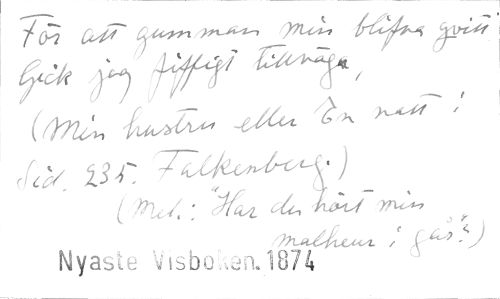 För att gumman min blifva qvitt
Gick jag fiffigt tillväga,
(Min hustru eller En natt i
Sid. 235. Falkenberg.)
(Mel.: "Har du hört min
malheur i går"?)
Nyaste Visboken. 1874